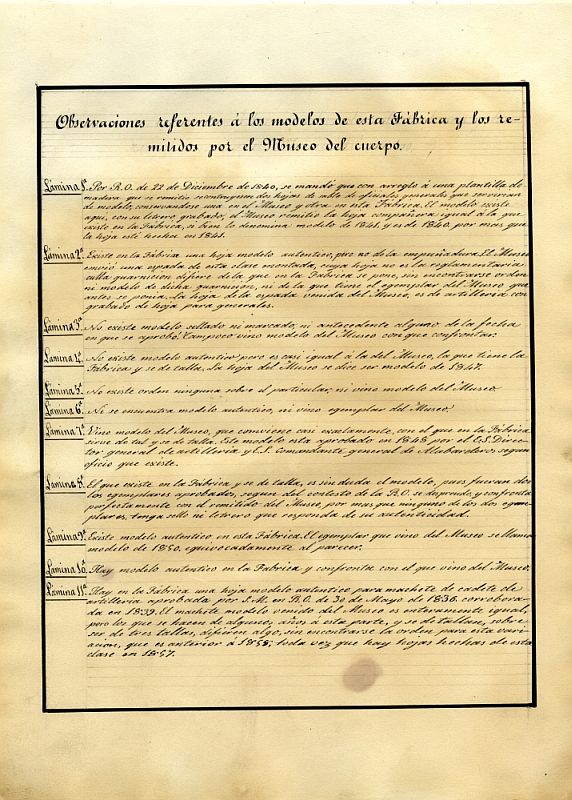 Observaciones referentes á los modelos de esta Fábrica y los re-
mitidos por el Museo del cuerpo.
Lámina 1ª Por R.O. de 22 de Diciembre de 1840, se mandó que con arreglo á una plantilla de
madera que se remitio se construyesen dos hojas de sable de oficiales generales que sirvieran
de modelo, conservandose una en el Museo y otra en esta Fabrica. El modelo existe
aqui, con su letrero grabado; el Museo remitio la hoja compañera igual á la que
existe en la Fabrica, si bien lo denomina modelo de 1841 y es de 1840, por mas que
la hoja esté hecha en 1841.
Lámina 2ª Existe en la Fabrica una hoja modelo autentico, pero no de la empuñadura. El Museo
envió una espada de esta clase montada, cuya hoja no es la reglamentaria;
cuIla guarnicion difiere de la que en la Fabrica se pone, sin encontrarse orden
ni modelo de dicha guarnicion, ni de la que tiene el ejemplar del Museo que
antes se ponia. La hoja de la espada venida del Museo, es de artilleria con
grabado de hoja para generales.
Lámina 3ª No existe modelo sellado ni marcado, ni antecedente alguno de la fecha
en que se aprobó. Tampoco vino modelo del Museo con que confrontar.
Lámina 4ª No existe modelo autentico pero es casi igual á la del Museo, la que tiene la
Fábrica y se da talla. La hoja del Museo se dice ser modelo de 1847.
Lámina 5ª No existe orden ninguna sobre el particular, ni vino modelo del Museo.
Lámina 6ª Ni se encuentra modelo autentico, ni vino ejemplar del Museo.
Lámina 7ª Vino modelo del Museo, que conviene casi exactamente, con el que en la Fábrica
sirve de tal y se da talla. Este modelo esta aprobado en 1848 por el E.S. Direc-
tor general de artilleria y E.S. comandante general de Alabarderos, segun
oficio que existe.
Lámina 8ª El que existe en la Fábrica y se da talla, es sin duda el modelo, pues fueron dos
los ejemplares aprobados, segun del contesto de la R.O. se desprende, y confronta
perfectamente con el remitido del Museo, por mas que ninguno de los dos ejem-
plares, tenga sello ni letrero que responda de su autenticidad.
Lámina 9ª Existe modelo autentico en esta Fabrica. El ejemplar que vino del Museo se llama
modelo de 1850, equivocadamente al parecer.
Lámina 10 Hay modelo autentico en la Fabrica y confronta con el que vino del Museo.
Lámina 11ª Hay en la Fabrica una hoja modelo autentico para machete de cadete de
artilleria aprobada por S.M. en R.O. de 30 de Mayo de 1836 corrobora-
da en 1839. El machete modelo venido del Museo es enteramente igual,
pero los que se hacen de algunos años á esta parte, y se da talla, sobre
ser de tres tallas, difieren algo, sin encontrarse la orden para esta vari-
acion, que es anterior á 1858; toda vez que hay hojas hechas de esta
clase en 1857.